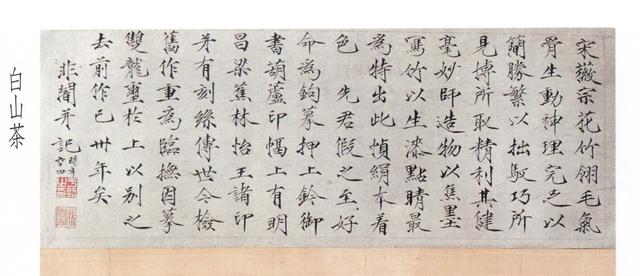 宋徽宗花竹翎毛氣
骨生動神理完足以
簡勝繁以拙馭巧所
見摶所取精利其健
毫妙師造物以焦墨
寫竹以生漆點睛最
為特出此幀絹本着
色 先君假之至好
命為鉤摹押上鈐御
書葫蘆印幅上有明
昌梁蕉林怡王諸印
并有刻絲傳世今檢
舊作重為臨撫因摹
雙龍璽於上以別之
去前作已卅年矣
非闇并記 時年
白山茶